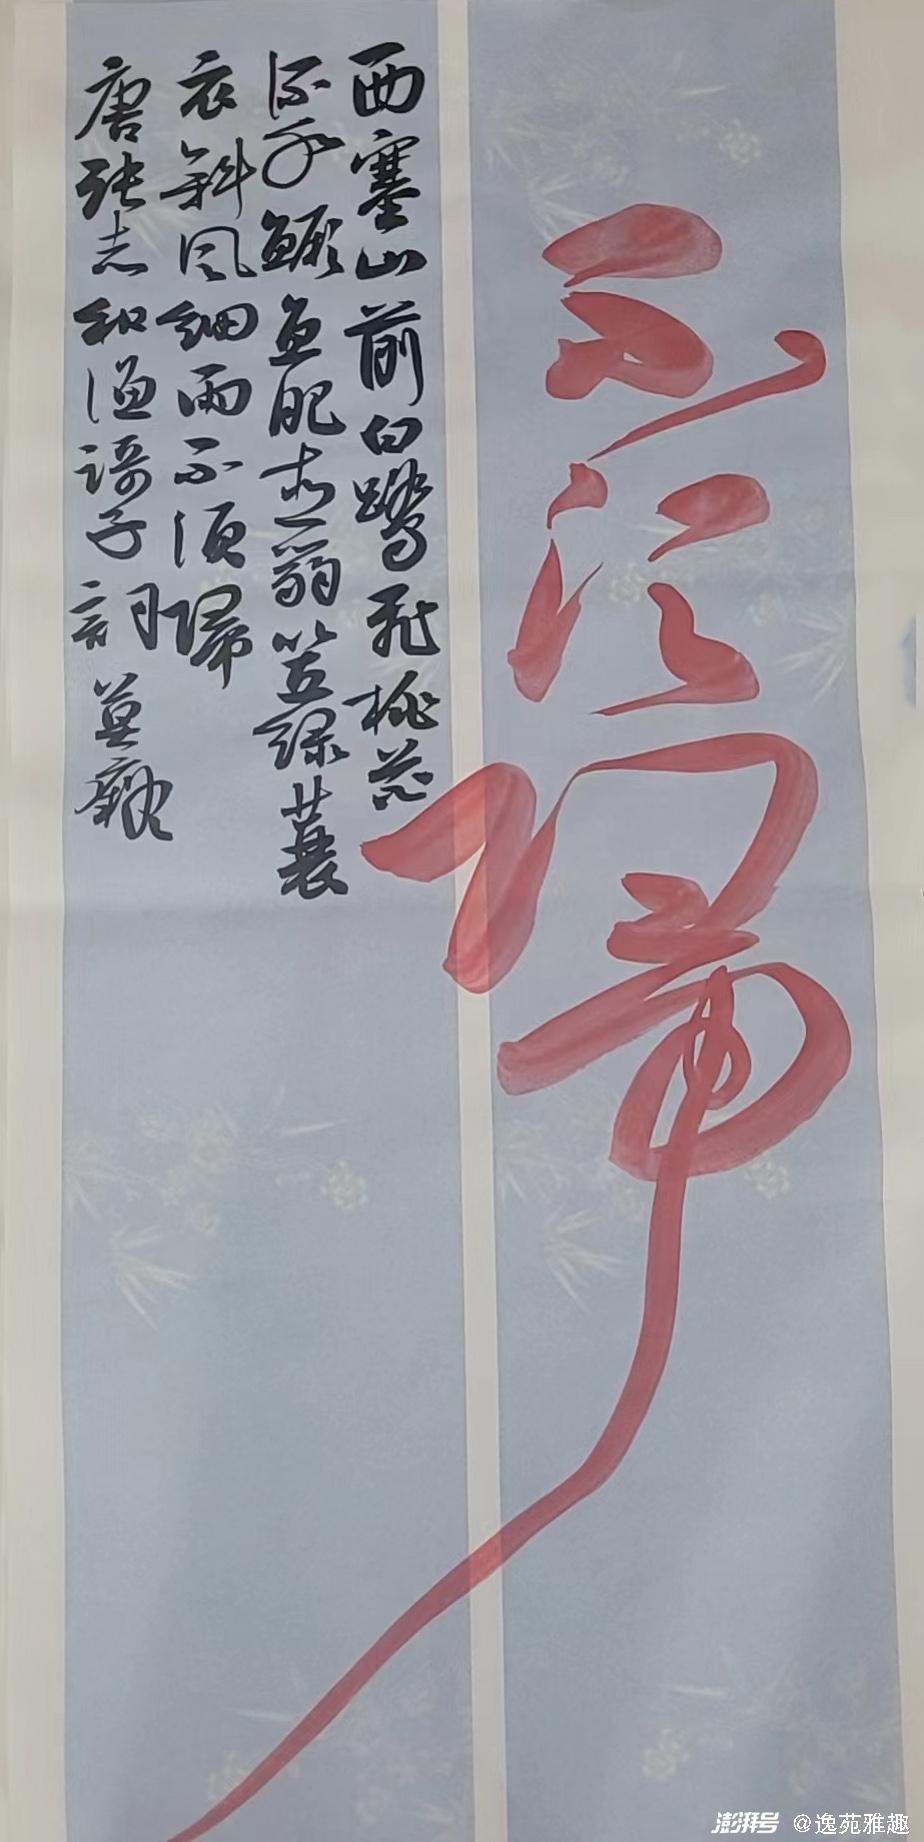 不须歸
西塞山前白鹭飛桃花
流水鳜鱼肥青箬笠绿蓑
衣斜风细雨不须歸
唐张志和渔謌子詞
澎湃号 @逸苑雅趣